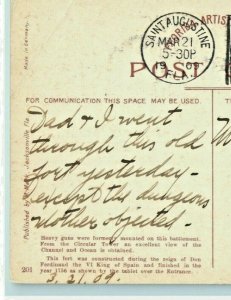 Made in Germany.
FLORIDA ARTIS
SAINT AUGUSTINE
MAR 21
5-30P
1909
FLA.
POST
FOR COMMUNICATION THIS SPACE MAY BE USED.
Dad & I went
through this old
fort yesterday-
except the dungeons
Mother objected.
M
Published by
Jacksonville, Fla.
Heavy guns were formerly mounted on this battlement.
From the Circular Tower an excellent view of the
Channel and Ocean is obtained.
This fort was constructed during the reign of Don
Ferdinand the VI King of Spain and finished in the
year 1756 as shown by the tablet over the Entrance.
201
3.21.09.